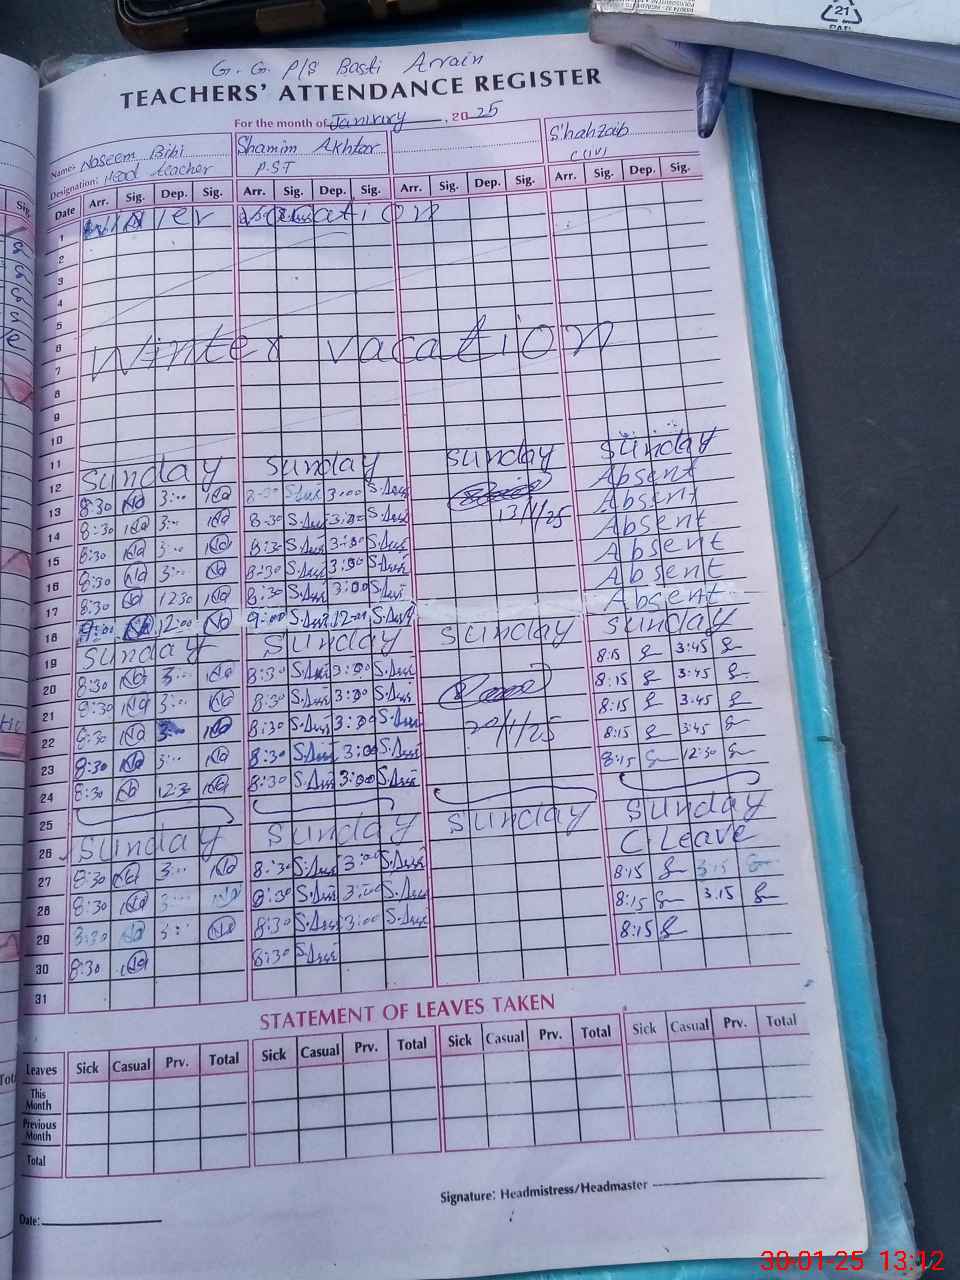 21
G. G. P/S Basti Arrain
TEACHERS' ATTENDANCE REGISTER
For the month of January, 2025
Name: Naseem Bibi Shamim Akhtar Shahzaib
Designation: Head teacher P.S.T C(IV)
Date Arr. Sig. Dep. Sig. Arr. Sig. Dep. Sig. Arr. Sig. Dep. Sig. Arr. Sig. Dep. Sig.
1 Winter vacation
2
3
4
5
6 Winter vacation
7
8
9
10
11
12 Sunday Sunday Sunday Sunday
13 8:30 3:00 8:30 S.Devi 3:00 S.Devi Absent
14 8:30 3:00 8:30 S.Devi 3:00 S.Devi 13/1/25 Absent
15 8:30 3:00 8:30 S.Devi 3:00 S.Devi Absent
16 8:30 3:00 8:30 S.Devi 3:00 S.Devi Absent
17 8:30 1230 8:30 S.Devi 3:00 S.Devi Absent
18 9:00 12:00 9:00 S.Devi 12:00 S.Devi Absent
19 Sunday Sunday Sunday Sunday
20 8:30 3:00 8:30 S.Devi 3:00 S.Devi 8:15 3:45
21 8:30 3:00 8:30 S.Devi 3:00 S.Devi 8:15 3:45
22 8:30 3:00 8:30 S.Devi 3:00 S.Devi 20/1/25 8:15 3:45
23 8:30 3:00 8:30 S.Devi 3:00 S.Devi 8:15 3:45
24 8:30 1230 8:30 S.Devi 3:00 S.Devi 8:15 12:30
25
26 Sunday Sunday Sunday Sunday
27 8:30 3:00 8:30 S.Devi 3:00 S.Devi C.Leave
28 8:30 3:00 8:30 S.Devi 3:00 S.Devi 8:15 3:15
29 8:30 3:00 8:30 S.Devi 3:00 S.Devi 8:15 3.15
30 8:30 8:30 S.Devi 8:15
31
STATEMENT OF LEAVES TAKEN
Leaves Sick Casual Prv. Total Sick Casual Prv. Total Sick Casual Prv. Total Sick Casual Prv. Total
This Month
Previous Month
Total
Signature: Headmistress/Headmaster
Date:
30-01-25 13:12